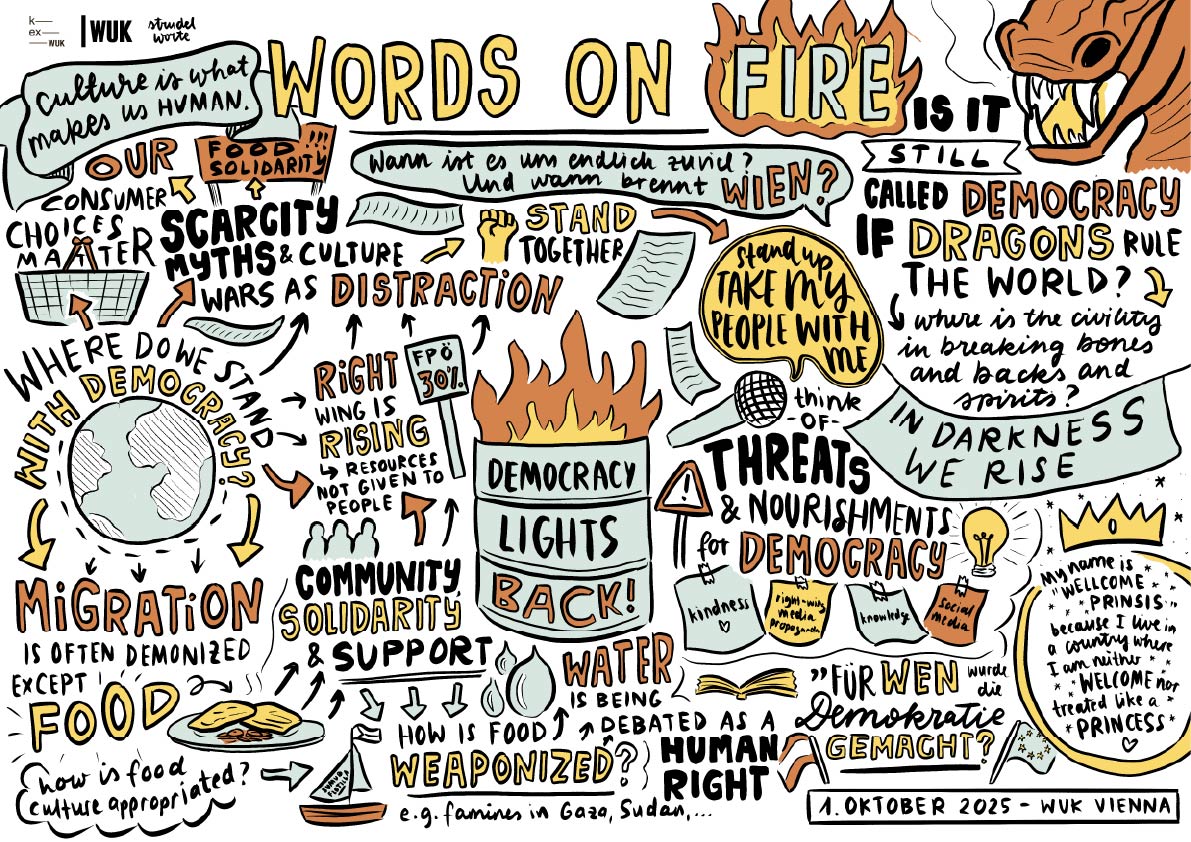 k—
ex—
—WUK
WUK
strudel
worte
Culture is what
makes us HUMAN.
WORDS ON FIRE
OUR
CONSUMER
CHOICES
MATTER
FOOD !!!
SOLIDARITY
SCARCITY
MYTHS & CULTURE
WARS AS DISTRACTION
Wann ist es uns endlich zuviel?
Und wann brennt WIEN?
STAND
TOGETHER
stand up
TAKE MY
PEOPLE WITH
ME
IS IT
STILL
CALLED DEMOCRACY
IF DRAGONS RULE
THE WORLD?
where is the civility
in breaking bones
and backs and
spirits?
IN DARKNESS
WE RISE
WHERE DO WE STAND
WITH DEMOCRACY?
RIGHT
WING IS
RISING
RESOURCES
NOT GIVEN TO
PEOPLE
FPÖ
30%
DEMOCRACY
LIGHTS
BACK!
think
-OF-
THREATS
& NOURISHMENTS
for DEMOCRACY
kindness
right-wing
media
propaganda
knowledge
social
media
MIGRATION
IS OFTEN DEMONIZED
EXCEPT
FOOD
how is food
culture appropriated?
COMMUNITY,
SOLIDARITY
& SUPPORT
HOW IS FOOD
WEAPONIZED?
e.g. famines in Gaza, Sudan,...
WATER
IS BEING
DEBATED AS A
HUMAN
RIGHT
"FÜR WEN wurde
die
Demokratie
GEMACHT?
My name is
"WELLCOME
PRINSIS"
because I live in
a country where
I am neither
WELCOME nor
treated like a
PRINCESS
1. OKTOBER 2025 - WUK VIENNA